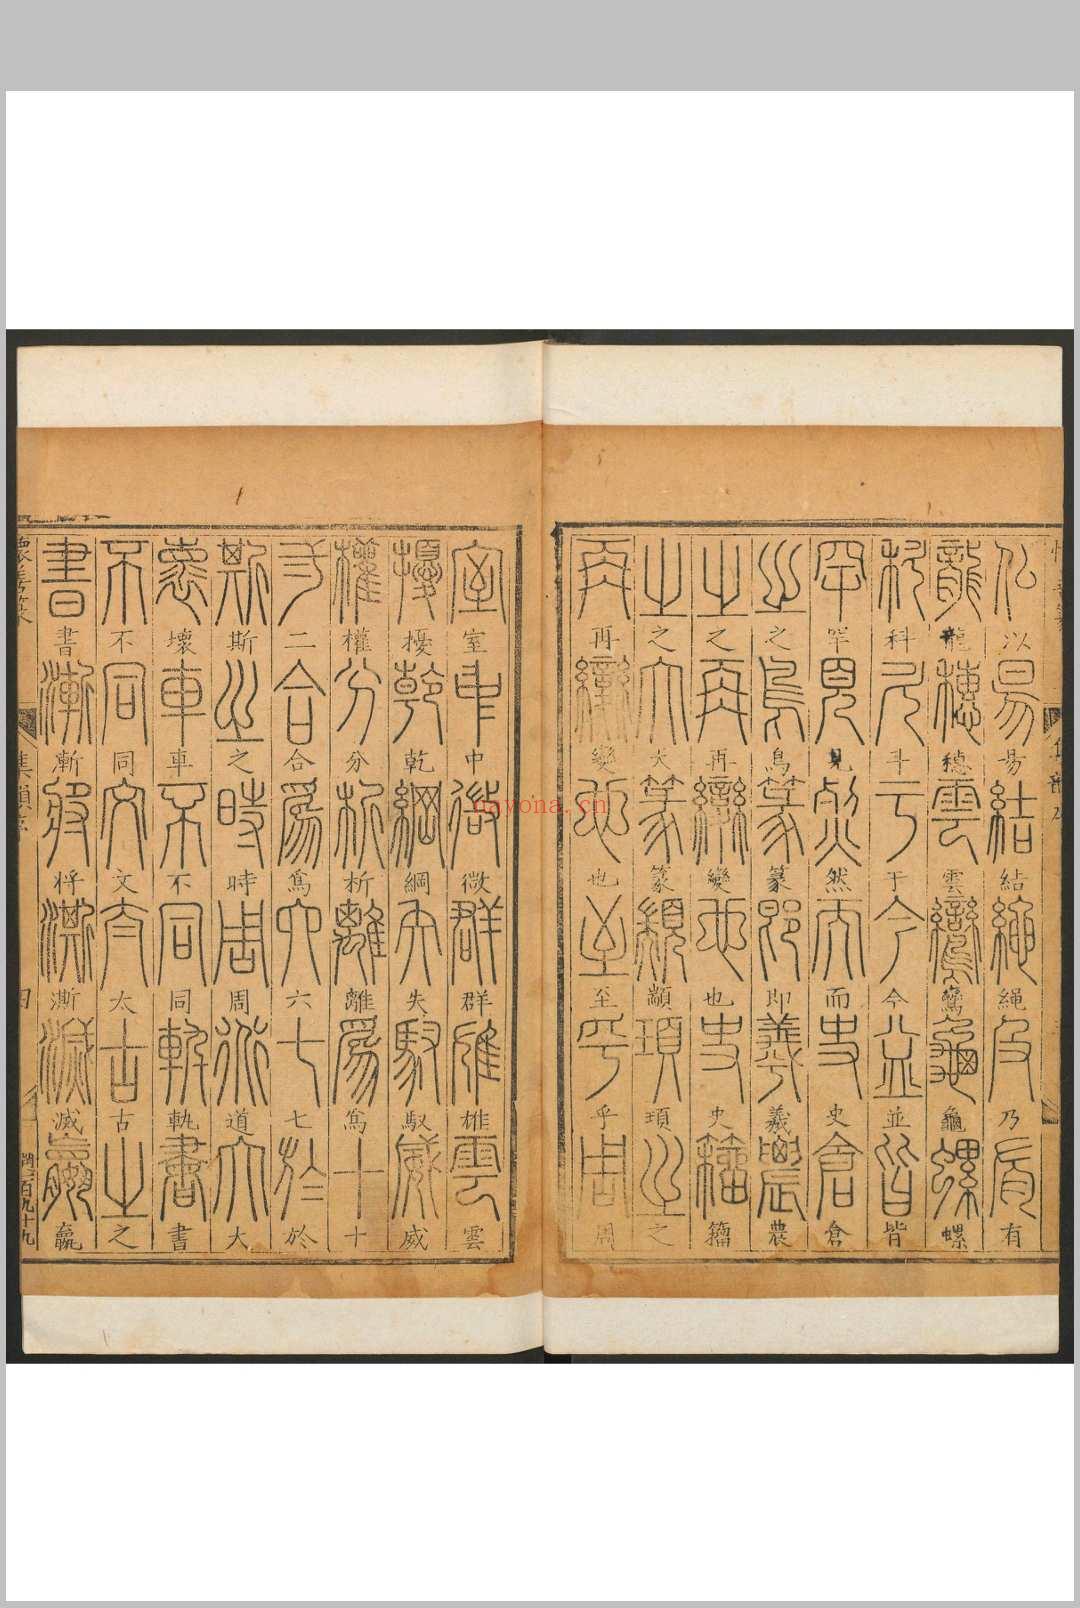 以易結繩乃有
龍穗雲鸞龜螺
科斗于今並皆
罕見然而史倉
之鳥篆即羲農
之再變也史籀
之大篆顓頊之
再變也至乎周
室中微群雄雲
擾乾綱失馭威
權分析離爲十
二合爲六七於
斯之時周道大
壞車不同軌書
不同文太古之
書漸將澌滅嬴
集韻序
四
百九十九
nayona.cn